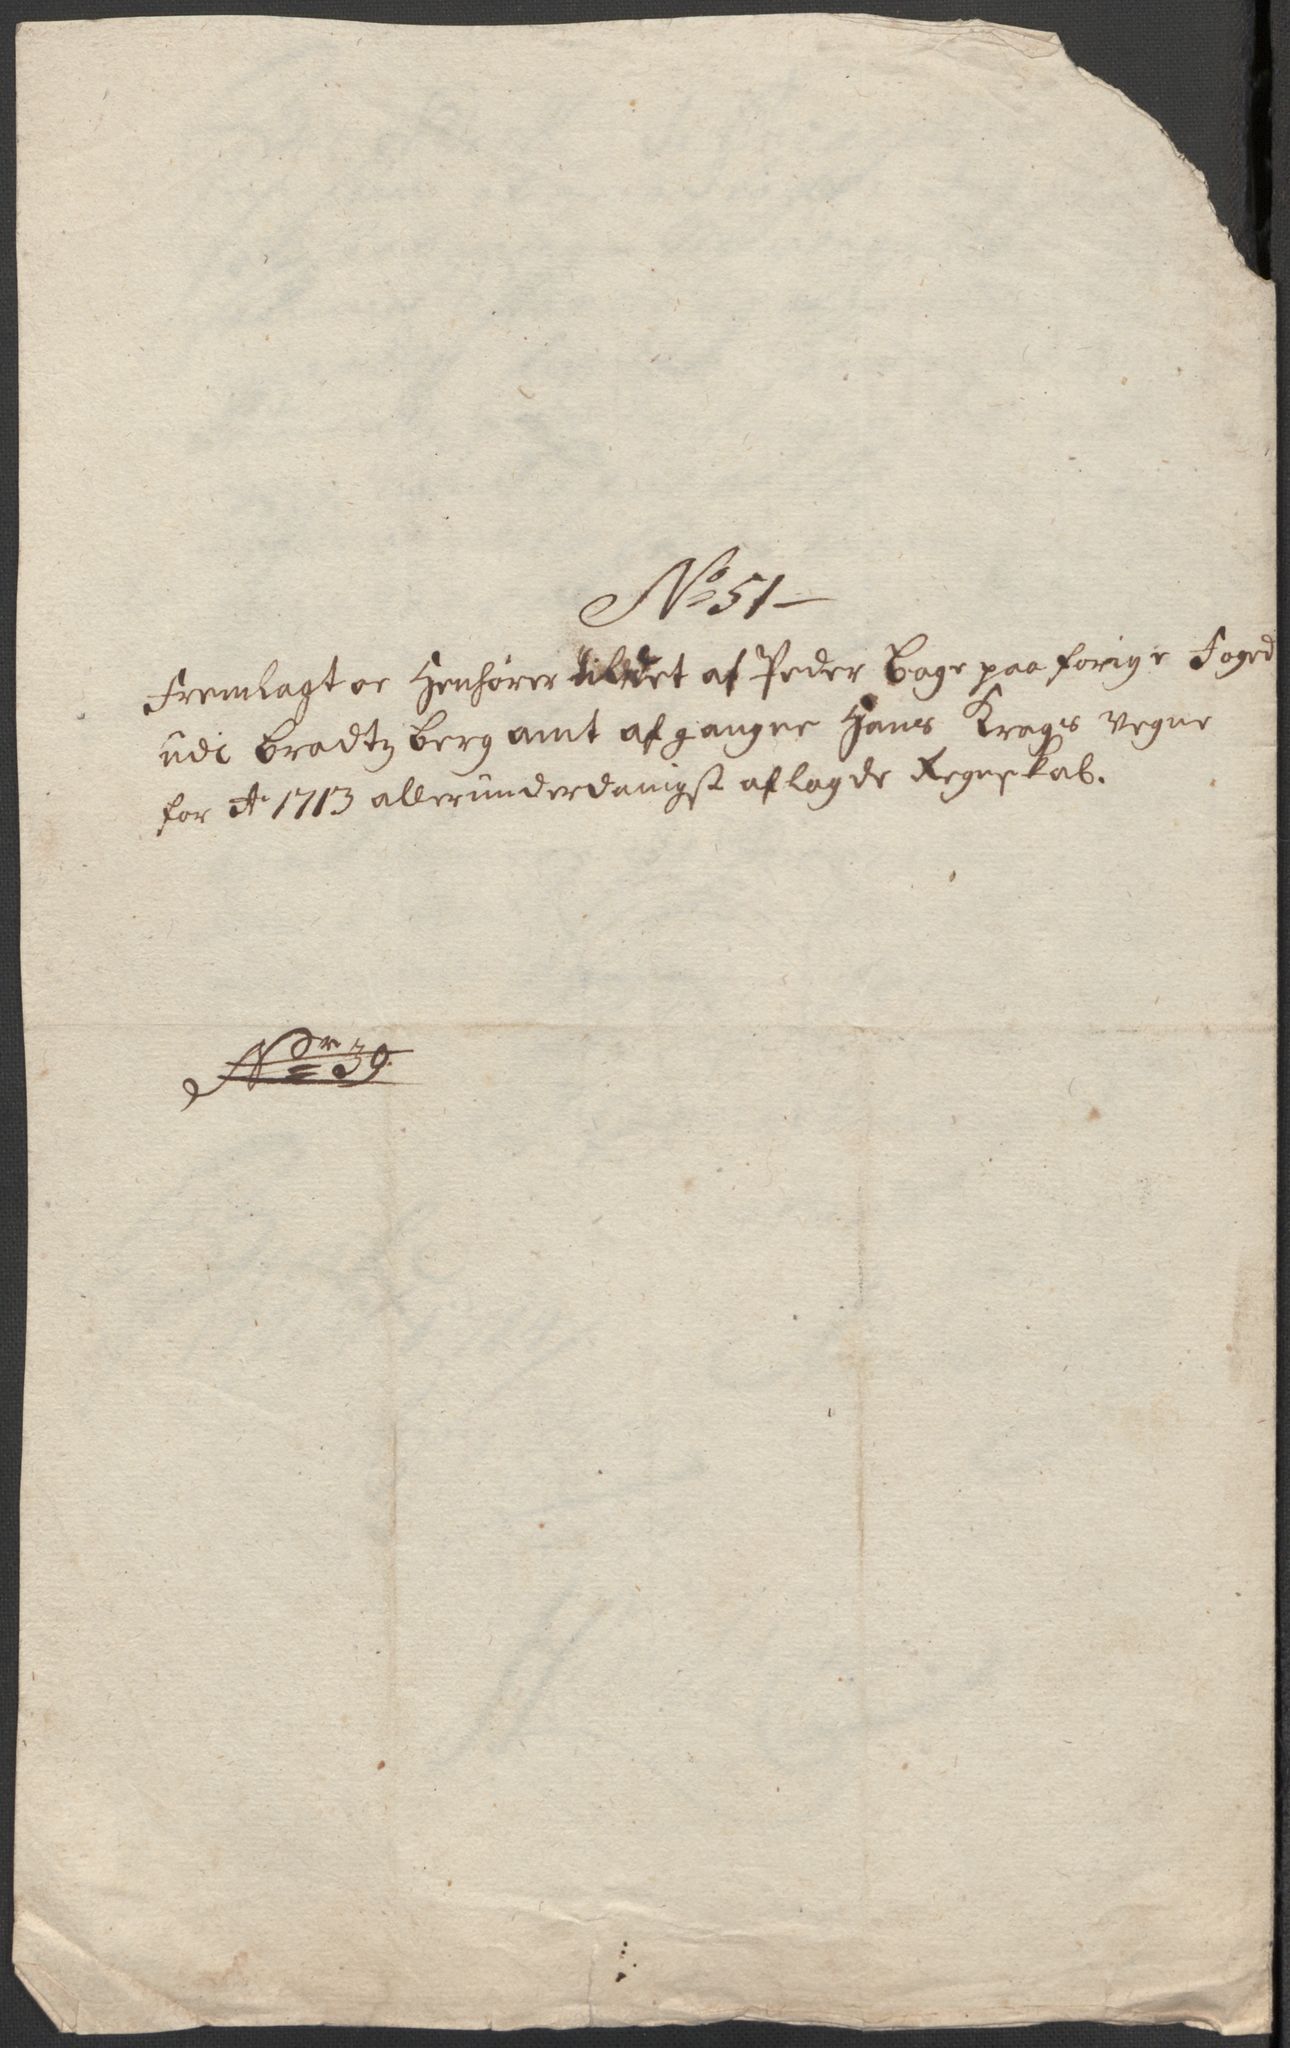 No 51
Fremlagt oc Henhører til det af Peder Bage paa forige Foged
udi Bradtzberg amt afgangne Hans Krags vegne
for Ao 1713 allerunderdanigst aflagde Regnskab.
Ndr 39.